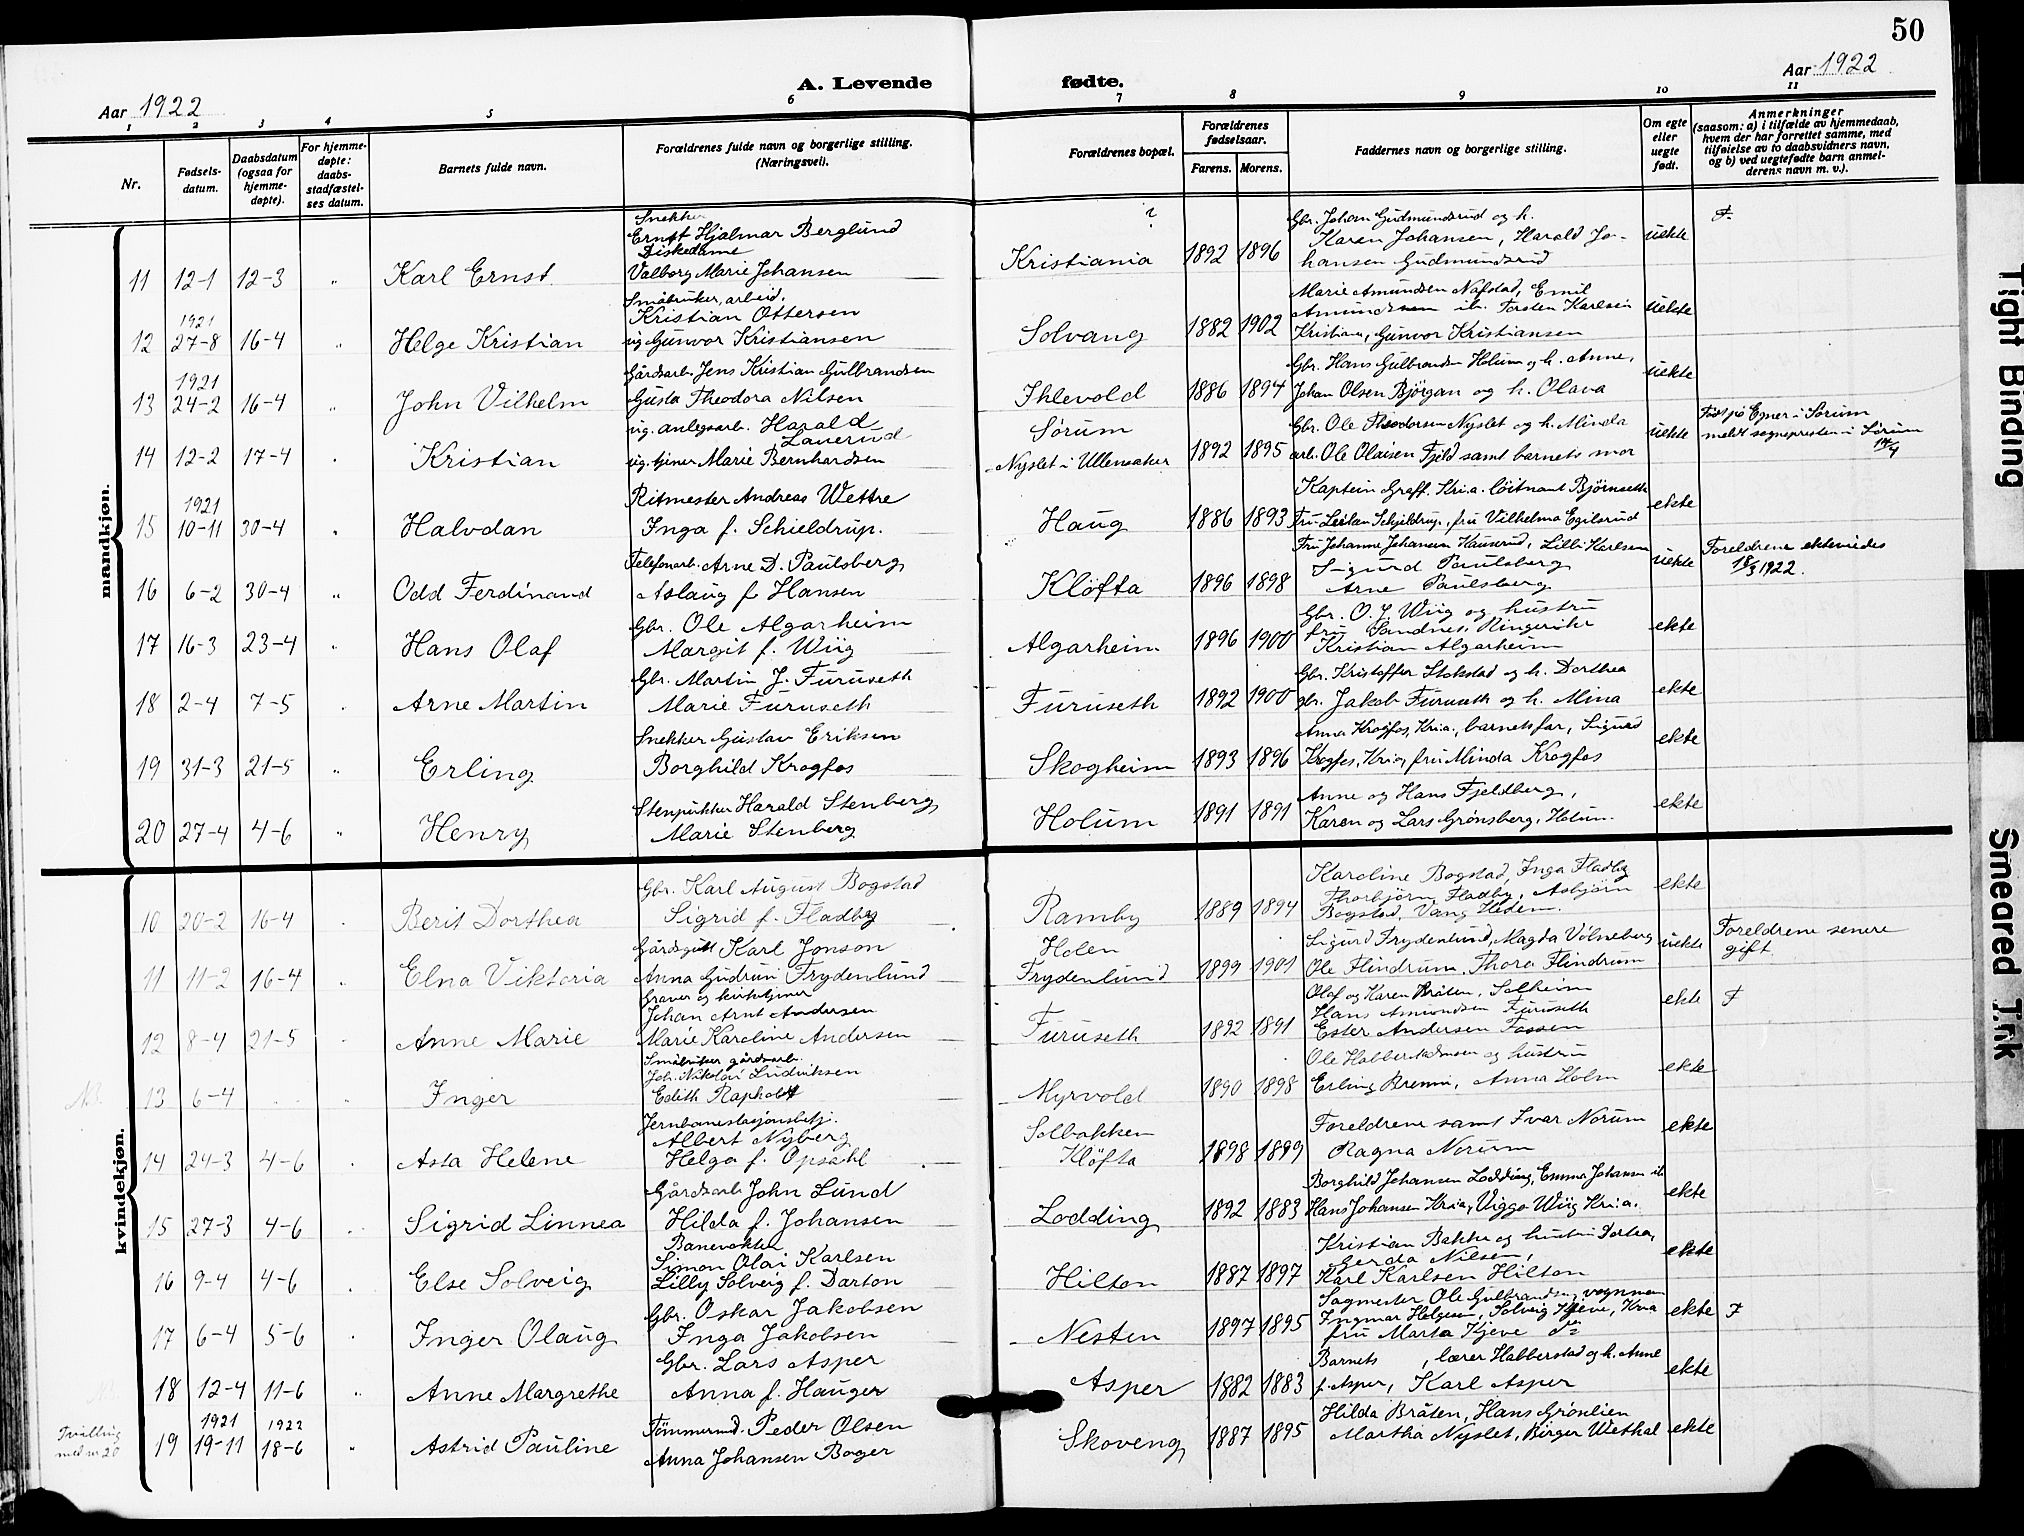 50
Aar 1922
A. Levende fødte.
Aar 1922
1 2 3 4 5 6 7 8 9 10 11
Nr.
Fødsels-
datum.
Daabsdatum
(ogsaa for
hjemme-
døpte).
For hjemme-
døpte:
daabs-
stadfæstel-
ses datum.
Barnets fulde navn.
Forældrenes fulde navn og borgerlige stilling.
(Næringsvei).
Forældrenes bopæl.
Forældrenes
fødselsaar.
Farens. Morens.
Faddernes navn og borgerlige stilling.
Om egte
eller
uegte
født.
Anmerkninger
(saasom: a) i tilfælde av hjemmedaab,
hvem der har forrettet samme, med
tilføielse av to daabsvidners navn,
og b) ved uegtefødte barn anmel-
derens navn m. v.).
mandkjøn.
Snekker
Ernst Hjalmar Berglund
Diskedame
11 12-1 12-3 " Karl Ernst. Valborg Marie Johansen
Kristiania 1892 1896
Gbr. Johan Gudmundsrud og h.
Karen Johansen, Harald Jo-
hansen Gudmundsrud
uekte
Småbruker, arbeid.
Kristian Ottersen
1921
12 27-8 16-4 " Helge Kristian ug. Gunvor Kristiansen
Solvang 1882 1902
Marie Amundsen Nafstad, Emil
Amundsen ib. Torsten Karlsen
Kristiania, Gunvor Kristiansen
uekte
Gårdsarb. Jens Kristian Gulbrandsen
1921
13 24-2 16-4 " John Vilhelm Gusta Theodora Nilsen
Ihlevold 1886 1894
Gbr. Hans Gulbrandsen Holum og h. Anne,
Johan Olsen Bjørgan og h. Olava
uekte
ug. anlegsarb. Harald
Lauerud
14 12-2 17-4 Kristian ug. tjener Marie Bernhardsen
Sørum
Nyslet i Ullensaker 1892 1895
Gbr. Ole Theodorsen Nyslet og h. Minda
arb. Ole Olaisen Fjeld samt barnets mor
uekte
Født på Egner i Sørum
meldt sognepresten i Sørum
17/4
Ritmester Andreas Wettre
1921
15 10-11 30-4 " Halvdan Inga f. Schieldrup.
Haug 1886 1893
Kaptein Graff. Kr.ia. löitnant Bjørnseth
Fru Leilan Schjeldrup, fru Vilhelma Egilsrud
ekte
Telefonarb. Arne D. Paulsberg
16 6-2 30-4 " Odd Ferdinand Aslaug f. Hansen
Kløfta 1896 1898
Fru Johanne Johansen Hauserud, Lilli Karlsen
Sigurd Paulsberg
Arne Paulsberg
uekte
Foreldrene ektevidde
18/3 1922.
Gbr. Ole Algarheim
17 16-3 23-4 " Hans Olaf Margit f. Wiig
Algarheim 1896 1900
Gbr. O. J. Wiig og hustru
fru Sandnes, Ringerike
Kristian Algarheim
ekte
Gbr. Martin J. Furuseth
18 2-4 7-5 Arne Martin Marie Furuseth
Furuseth 1892 1900
Gbr. Kristoffer Stokstad og h. Dorthea
gbr. Jakob Furuseth og h. Mina
ekte
Snekker Gustav Eriksen
19 31-3 21-5 " Erling Borghild Krogfos
Skogheim 1893 1896
Anna Krogfos, Kr.ia., barnets far, Sigurd
Krogfos, Kr.ia, fru Minda Krogfos
ekte
Stenpukker Harald Stenberg
20 27-4 4-6 " Henry Marie Stenberg
Holum 1891 1891
Anne og Hans Fjeldberg,
Karen og Lars Grønsberg, Holum.
ekte
kvindekjøn.
Gbr. Karl August Bogstad
10 20-2 16-4 Berit Dorthea Sigrid f. Fladby
Ramby 1889 1894
Karoline Bogstad, Inga Fladby
Thorbjørn Fladby, Asbjørn
Bogstad, Vang Hedem.
ekte
Gårdsgutt Karl Jonson
11 11-2 16-4 Elna Viktoria Anna Gudrun Frydenlund
Holen
Frydenlund 1899 1901
Sigurd Frydenlund, Magda Vølneberg
Ole Flindrum, Thora Flindrum
uekte
Foreldrene senere
gift.
Graver og kirketjener
Johan Arnt Andersen
12 8-4 21-5 Anne Marie Marie Karoline Andersen
Furuseth 1892 1891
Olaf og Karen Bråten, Solheim
Hans Amundsen Furuseth
Ester Andersen Fossen
ekte
Småbruker gårdsarb.
Joh. Nikolai Ludviksen
NB. 13 6-4 Inger Edith Rapholdt
Myrvold 1890 1898
Erling Brenni, Anna Holm
ekte
Jernbanestasjonsbetj.
Albert Nyberg
14 24-3 4-6 Asta Helene Helga f. Opsahl
Solbakken
Kløfta 1898 1899
Foreldrene samt Ivar Norum
Ragna Norum
ekte
Gårdsarb. John Lund
15 27-3 4-6 Sigrid Linnea Hilda f. Johansen
Lodding 1892 1883
Borghild Johansen Lodding, Emma Johansen ib
Hans Johansen Kr.ia, Viggo Wiig Kr.ia.
ekte
Banevokter
Simon Olai Karlsen
16 9-4 4-6 Else Solveig Lilly Solveig f. Darton
Hilton 1887 1897
Kristian Bakke og hustru Dortea,
Gerda Nilsen,
Karl Karlsen Hilton
ekte
Gbr. Oskar Jakobsen
17 6-4 5-6 Inger Olaug Inga Jakobsen
Nesten 1897 1895
Sagmester Ole Gulbrandsen, vognman
Ingmar Helgesen, Solveig Kjeve, Kr.ia
fru Marta Kjeve do
ekte
Gbr. Lars Asper
NB. 18 12-4 11-6 " Anne Margrethe Anna f. Hauger
Asper 1882 1883
Barnets , lærer Habberstad og h. Anne
f. Asper, Karl Asper
ekte
Tømmermd. Peder Olsen
Tvilling
med nr 20
1921 1922
19 19-11 18-6 " Astrid Pauline Anna Johansen Boger
Skoveng 1887 1895
Hilda Bråten, Hans Grønlien
Martha Nyslet, Birger Wethal
ekte
Tight Binding
Smeared T.nk